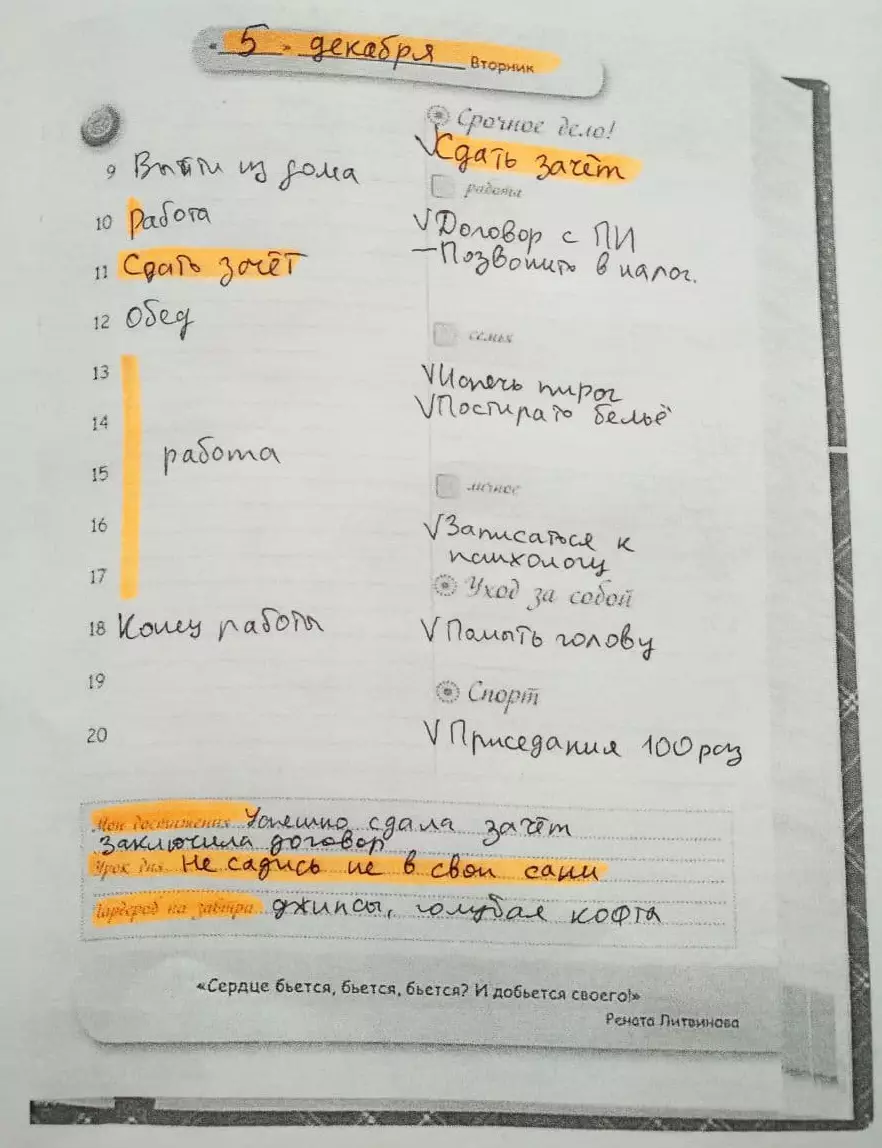 « 5 » декабря Вторник
9 Выйти из дома
10 Работа
11 Сдать зачёт
12 Обед
13
14
работа
15
16
17
18 Конец работы
19
20
Срочное дело!
√ Сдать зачёт
работа
√ Договор с ПИ
– Позвонить в налог.
семья
√ Испечь пирог
√ Постирать бельё
личное
√ Записаться к
психологу
Уход за собой
√ Помыть голову
Спорт
√ Приседания 100 раз
Мои достижения Успешно сдала зачёт
заключила договор
Урок дня Не садись не в свои сани
Гардероб на завтра джинсы, голубая кофта
«Сердце бьется, бьется, бьется? И добьется своего!»
Рената Литвинова